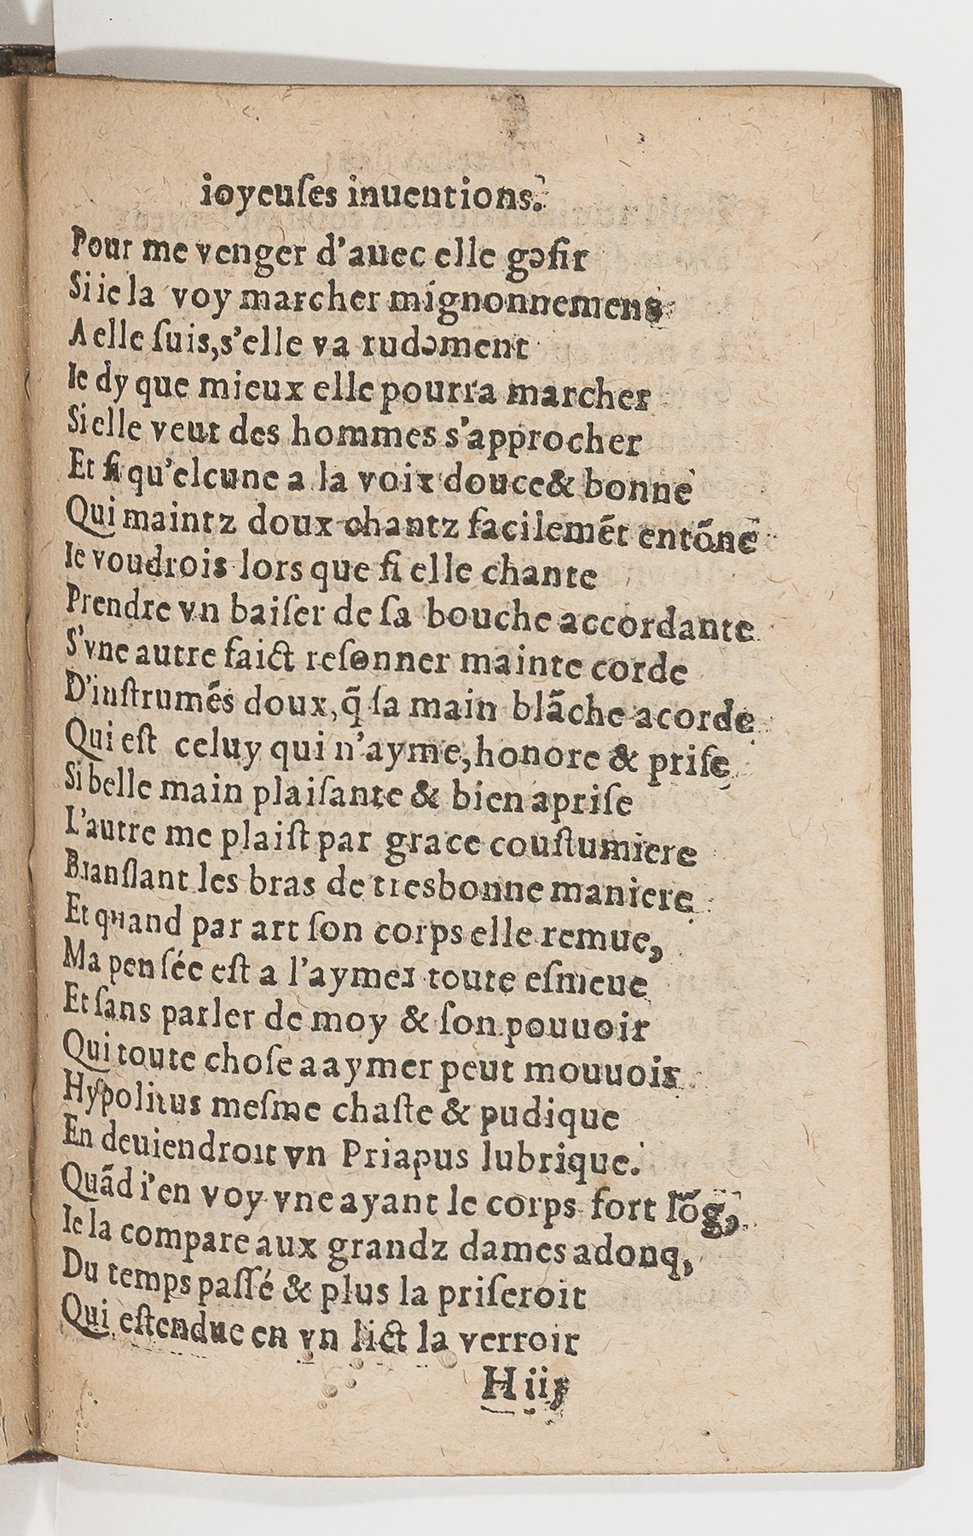 ioyeuſes inuentions.
Pour me venger d'auec elle gɔſir
Si ie la voy marcher mignonnemens
A elle ſuis, s'elle va rudɔment
Ie dy que mieux elle pourra marcher
Si elle veut des hommes s'approcher
Et ſi qu'elcune a la voix douce & bonne
Qui maintz doux chantz facilemẽt entõne
Ie voudrois lors que ſi elle chante
Prendre vn baiſer de ſa bouche accordante
S'vne autre faict reſonner mainte corde
D'inſtrumẽs doux, q̃ ſa main blãche acorde
Qui eſt celuy qui n'ayme, honore & priſe
Si belle main plaiſante & bien apriſe
L'autre me plaiſt par grace couſtumiere
Branſlant les bras de tresbonne maniere
Et quand par art ſon corps elle remue,
Ma penſée eſt a l'aymer toute eſmeue
Et ſans parler de moy & ſon pouuoir
Qui toute choſe a aymer peut mouuoir
Hyſpolitus meſme chaſte & pudique
En deuiendroit vn Priapus lubrique.
Quãd i'en voy vne ayant le corps fort lõg,
Ie la compare aux grandz dames adonq,
Du temps paſſé & plus la priſeroit
Qui eſtendue en vn lict la verroit
H iij